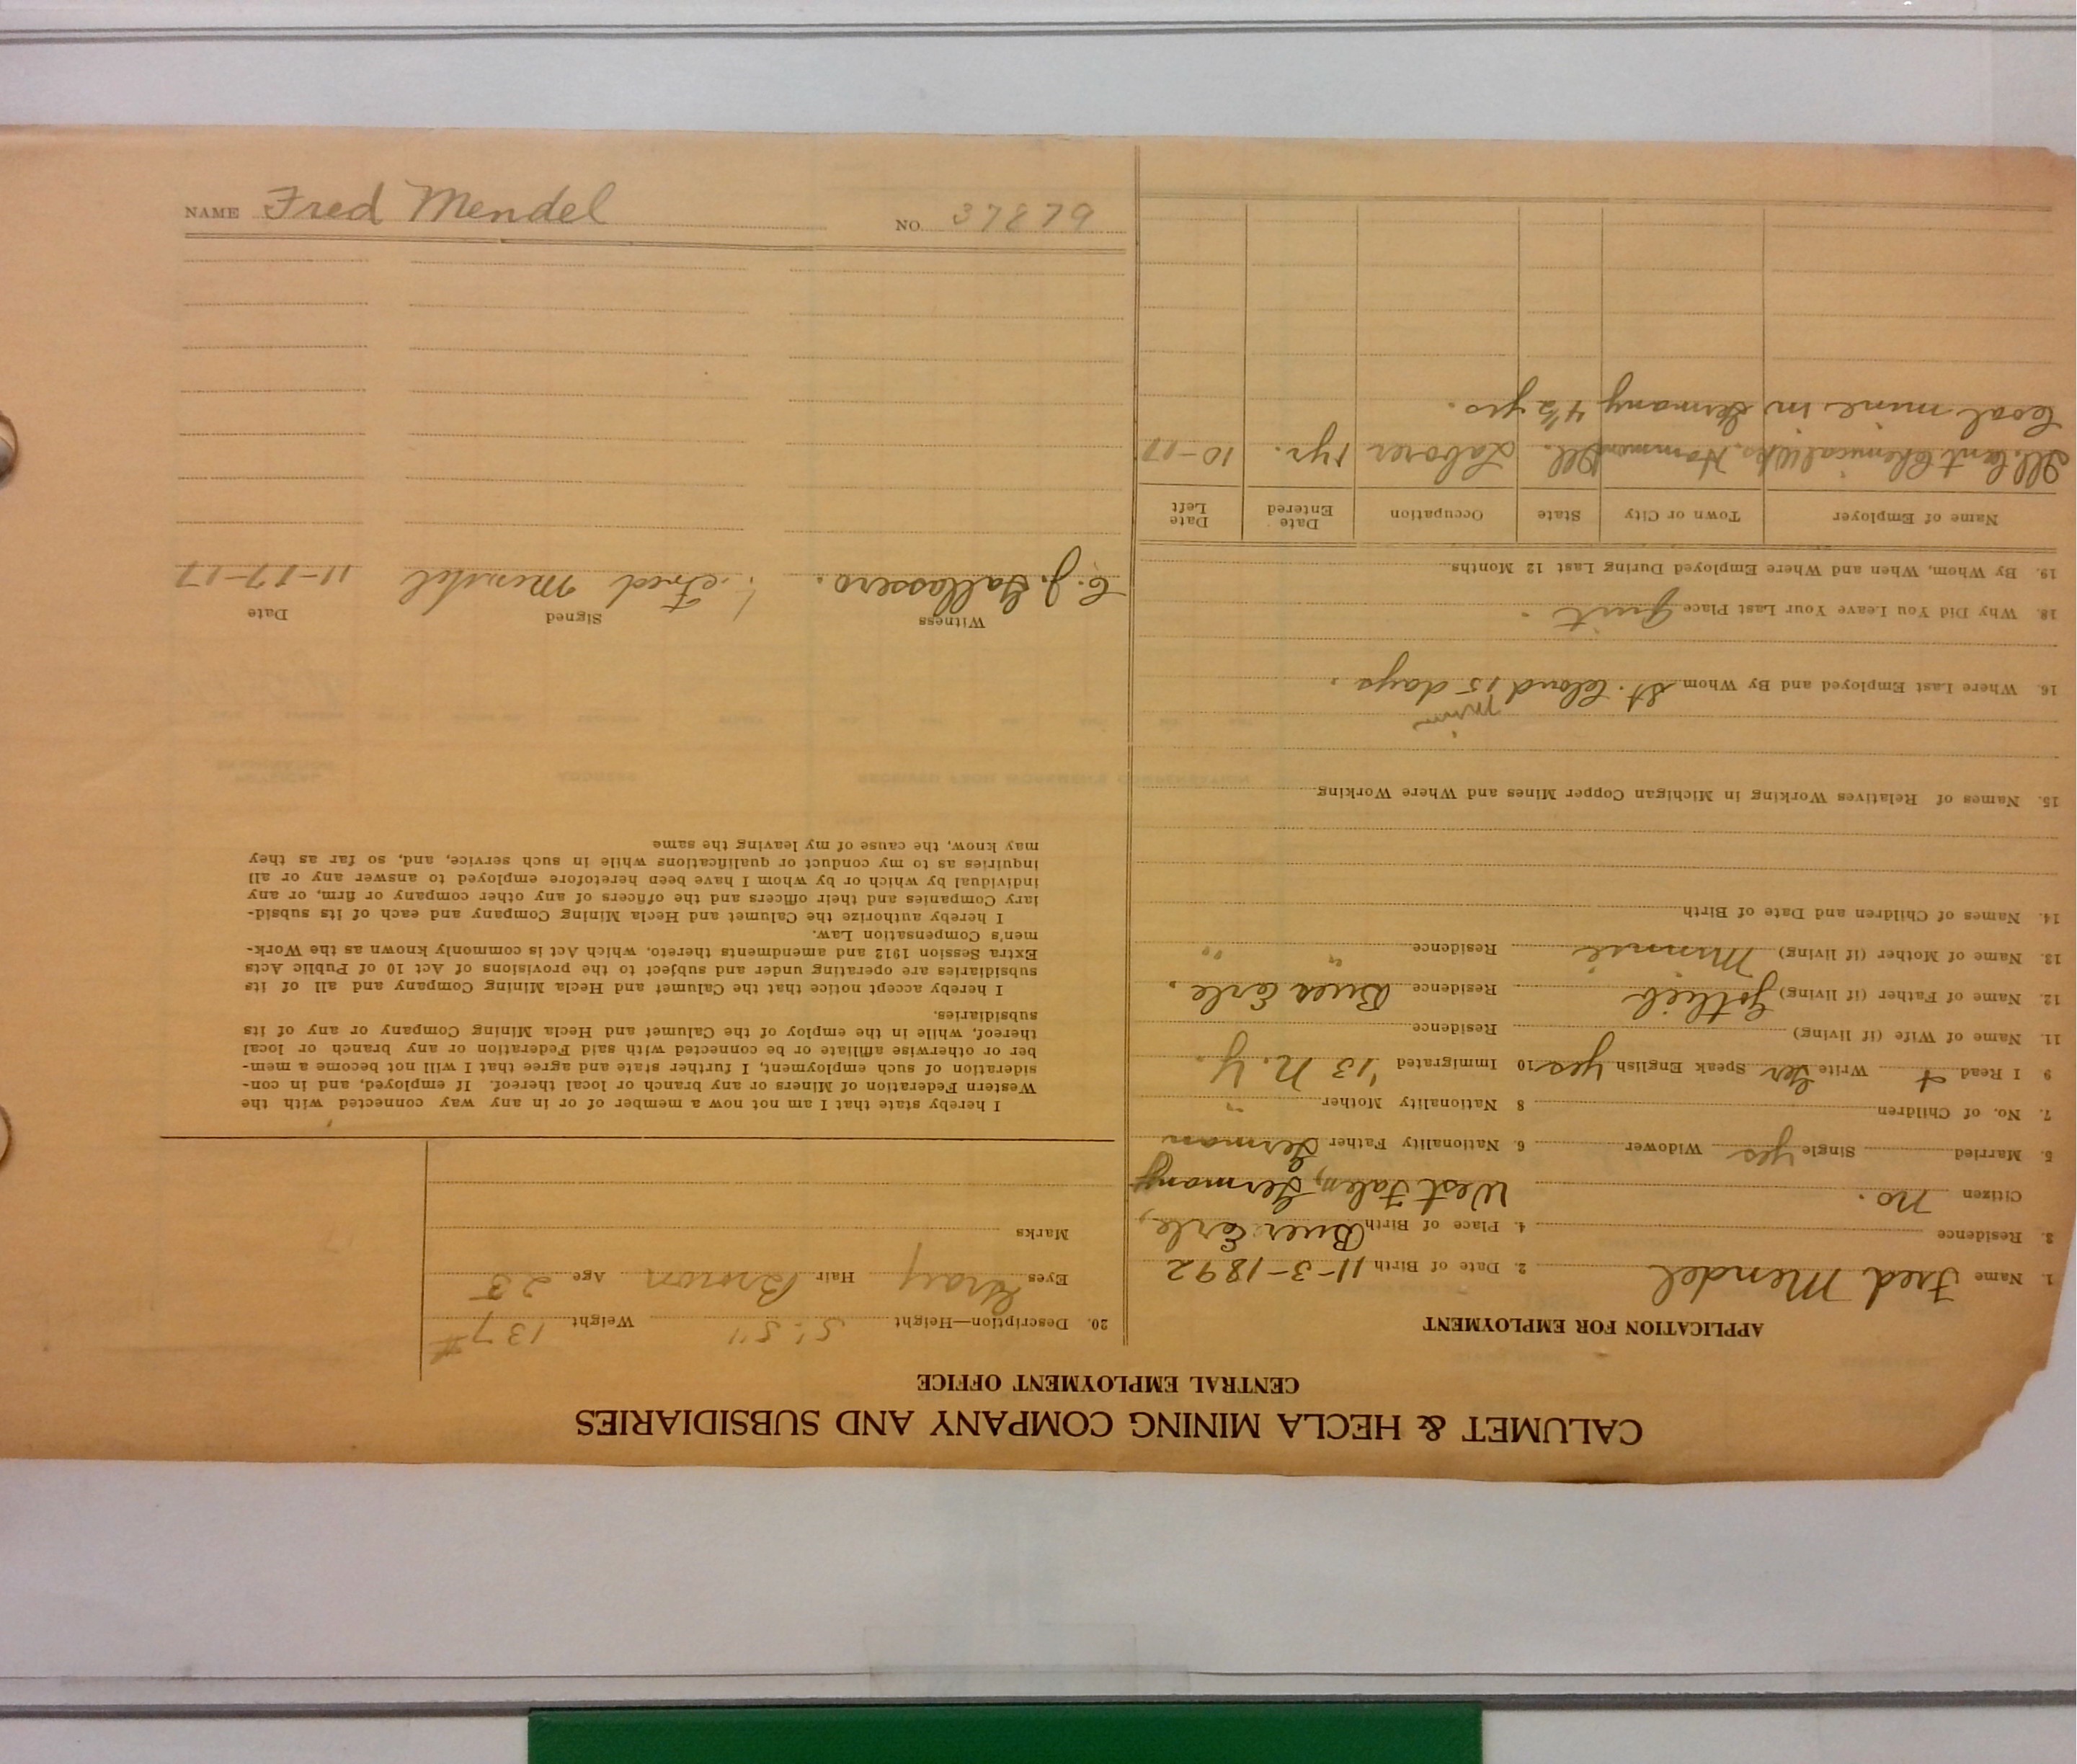 CALUMET & HECLA MINING COMPANY AND SUBSIDIARIES
CENTRAL EMPLOYMENT OFFICE
APPLICATION FOR EMPLOYMENT
1. Name Fred Mendel 2. Date of Birth 11-3-1892
3. Residence 4. Place of Birth Buer Erle,
Citizen no. West Falen, Germany
5. Married Single yes Widower 6. Nationality Father German
7. No. of Children 8 Nationality Mother "
9 I Read + Write Ger Speak English yes 10 Immigrated '13 N.Y.
11. Name of Wife (if living) Residence
12. Name of Father (if living) Gotlieb Residence Buer Erle.
13. Name of Mother (if living) Minnie Residence " "
14. Names of Children and Date of Birth
15. Names of Relatives Working in Michigan Copper Mines and Where Working
16. Where Last Employed and By Whom St. Cloud 15 days.
18. Why Did You Leave Your Last Place quit.
19. By Whom, When and Where Employed During Last 12 Months
Name of Employer Town or City State Occupation Date Entered Date Left
Chemical Wks. Hammond Ill. Laborer 1 yr. 10-17
Coal mine in Germany 4½ yrs.
20. Description—Height 5'.5" Weight 137#
Eyes Gray Hair Brown Age 25
Marks
I hereby state that I am not now a member of or in any way connected with the
Western Federation of Miners or any branch or local thereof. If employed, and in con-
sideration of such employment, I further state and agree that I will not become a mem-
ber or otherwise affiliate or be connected with said Federation or any branch or local
thereof, while in the employ of the Calumet and Hecla Mining Company or any of its
subsidiaries.
I hereby accept notice that the Calumet and Hecla Mining Company and all of its
subsidiaries are operating under and subject to the provisions of Act 10 of Public Acts
Extra Session 1912 and amendments thereto, which Act is commonly known as the Work-
men's Compensation Law.
I hereby authorize the Calumet and Hecla Mining Company and each of its subsid-
iary Companies and their officers and the officers of any other company or firm, or any
individual by which or by whom I have been heretofore employed to answer any or all
inquiries as to my conduct or qualifications while in such service, and, so far as they
may know, the cause of my leaving the same
Witness Signed Date
C. J. Gallassero. Fred Mendel 11-17-17
NAME Fred Mendel NO. 37879